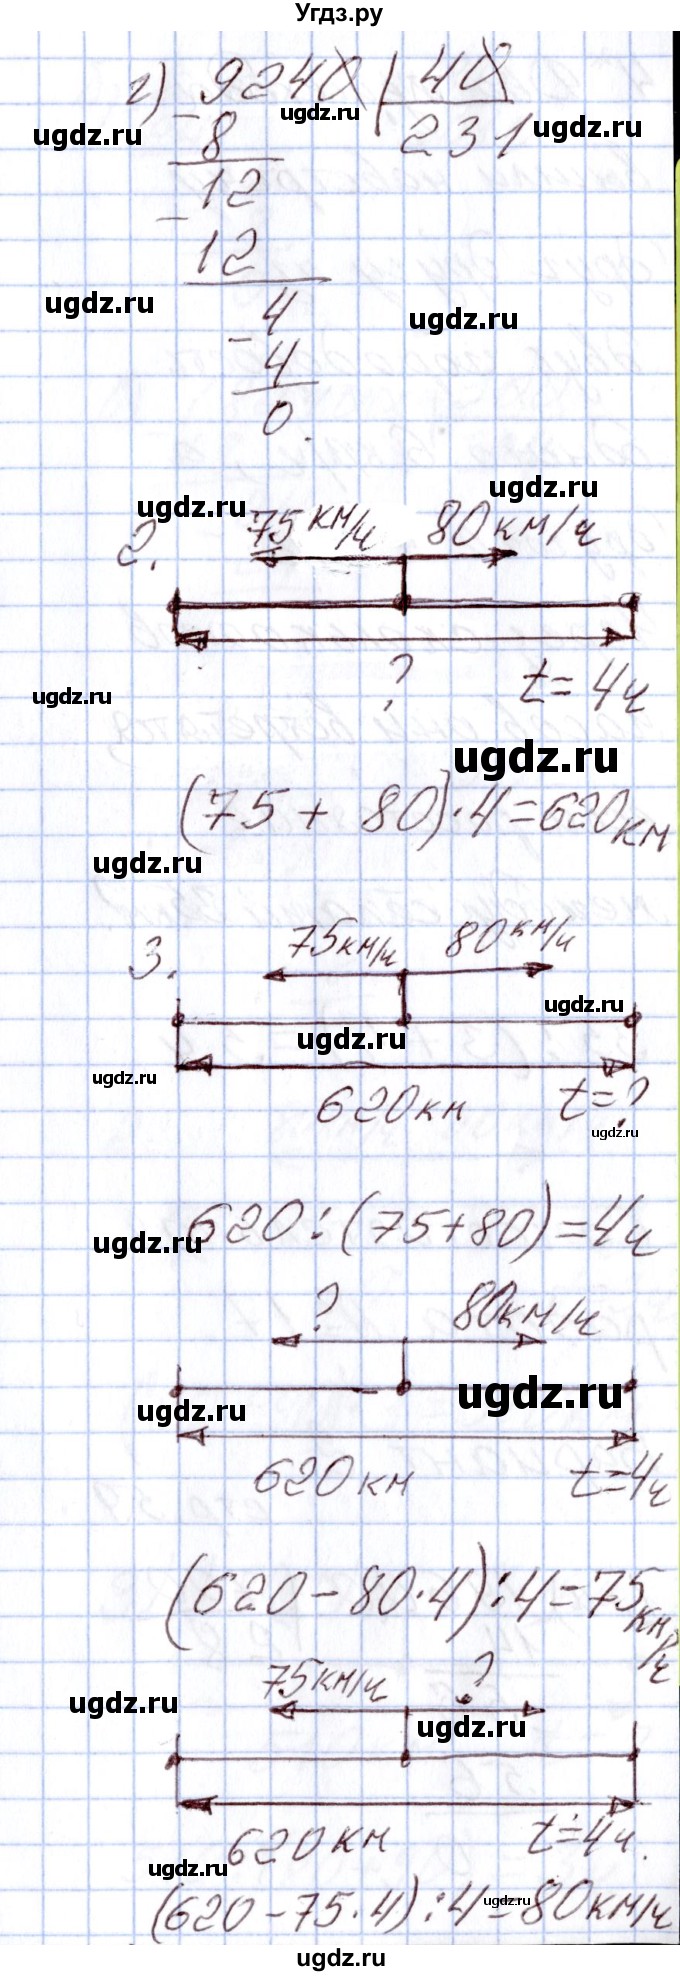 Угдз.ру
г) 9240 | 40
ugdz.ru
- 8 231
ugdz.ru ugdz.ru
12
- 12
ugdz.ru ugdz.ru
4
- 4
0.
ugdz.ru
ugdz.ru
2. 75 км/ч 80 км/ч
? t = 4ч
ugdz.ru
ugdz.ru
(75 + 80)·4 = 620 км
ugdz.ru
3. 75 км/ч 80 км/ч
ugdz.ru
ugdz.ru
ugdz.ru
620 км t = ?
ugdz.ru
620 : (75 + 80) = 4ч
ugdz.ru
? 80 км/ч
ugdz.ru
ugdz.ru
620 км t = 4ч
(620 - 80·4) : 4 = 75 км/ч
75 км/ч ?
ugdz.ru
ugdz.ru
620 км t = 4ч.
ugdz.ru
(620 - 75·4) : 4 = 80 км/ч
ugdz.ru
ugdz.ru